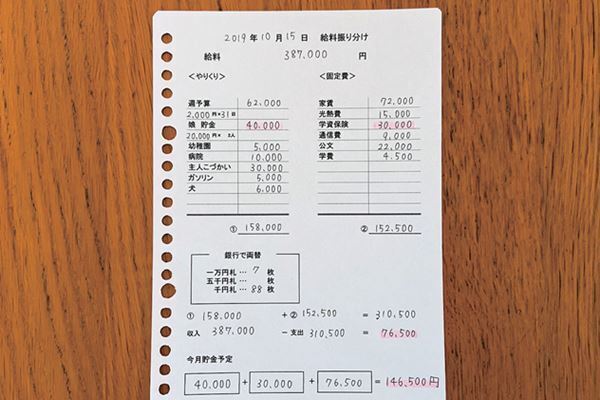 2019年10月15日 給料振り分け
給料 387,000 円
<やりくり> <固定費>
週予算 62,000 家賃 72,000
2,000円×31日 光熱費 15,000
娘 貯金 40,000 学資保険 30,000
20,000円×2人 通信費 9,000
幼稚園 5,000 公文 22,000
病院 10,000 学費 4,500
主人こづかい 30,000
ガソリン 5,000
犬 6,000
① 158,000 ② 152,500
銀行で両替
一万円札… 7 枚
五千円札… 枚
千円札… 88 枚
① 158,000 +② 152,500 = 310,500
収入 387,000 −支出 310,500 = 76,500
今月貯金予定
40,000 + 30,000 + 76,500 = 146,500円